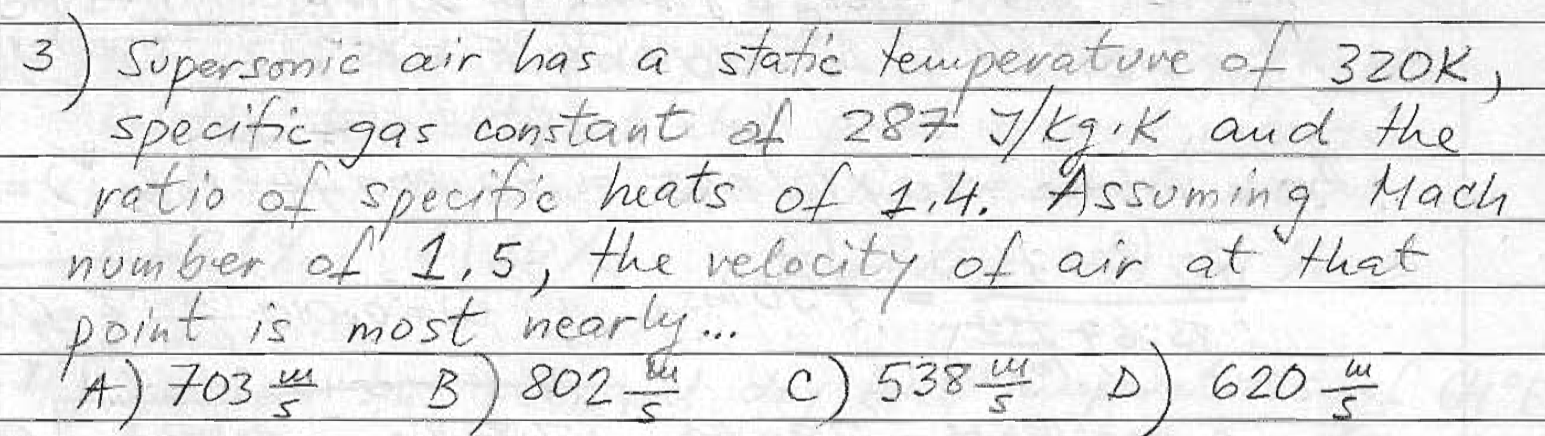 3) Supersonic air has a static temperature of 320K,
specific gas constant of 287 J/kg·K and the
ratio of specific heats of 1.4. Assuming Mach
number of 1.5, the velocity of air at that
point is most nearly...
A) 703 m/s B) 802 m/s C) 538 m/s D) 620 m/s